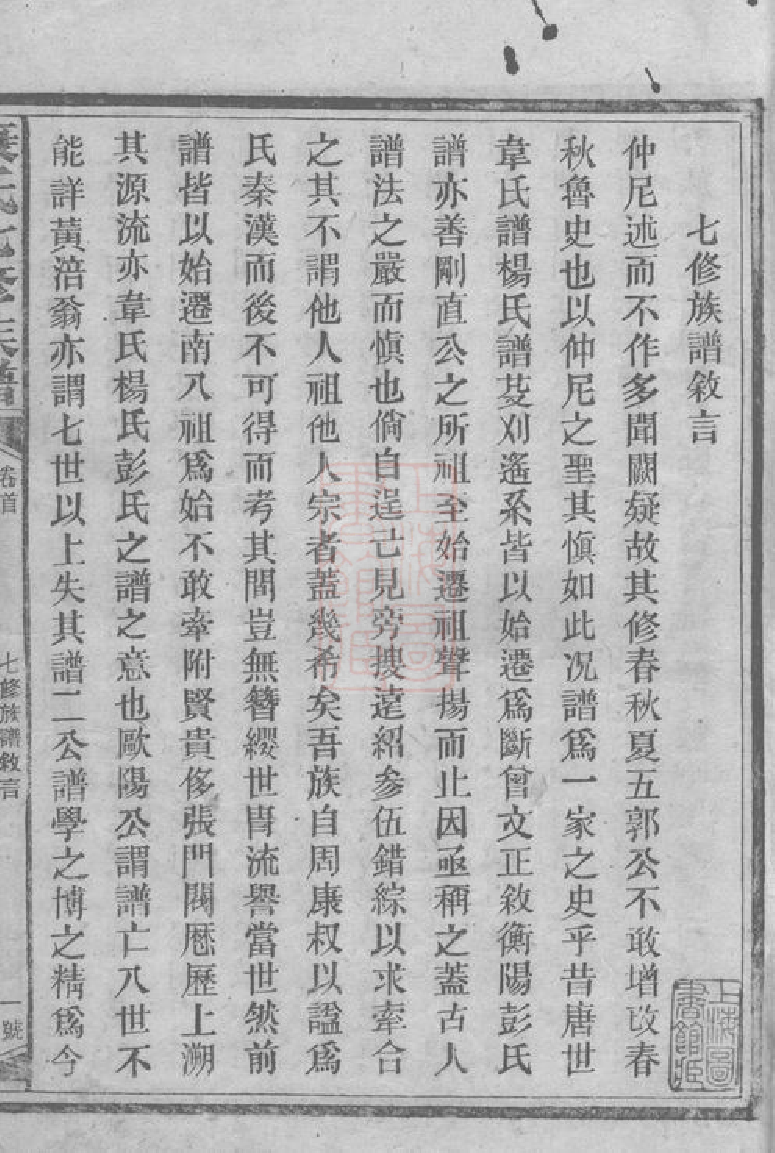 七修族譜敘言
仲尼述而不作多聞闕疑故其修春秋夏五郭公不敢增改春
秋魯史也以仲尼之聖其慎如此况譜爲一家之史乎昔唐世
韋氏譜楊氏譜芟刈遙系皆以始遷爲斷曾文正敘衡陽彭氏
譜亦善剛直公之所祖至始遷祖聲揚而止因亟稱之蓋古人
譜法之嚴而慎也倘自逞己見旁搜遠紹參伍錯綜以求牽合
之其不謂他人祖他人宗者蓋幾希矣吾族自周康叔以謚爲
氏秦漢而後不可得而考其間豈無簪纓世胄流譽當世然前
譜皆以始遷南八祖爲始不敢牽附賢貴侈張門閥慝歷上溯
其源流亦韋氏楊氏彭氏之譜之意也歐陽公謂譜亡八世不
能詳黃涪翁亦謂七世以上失其譜二公譜學之博之精爲今
康氏七修族譜
卷首
七修族譜敘言
一號
上海圖書館藏